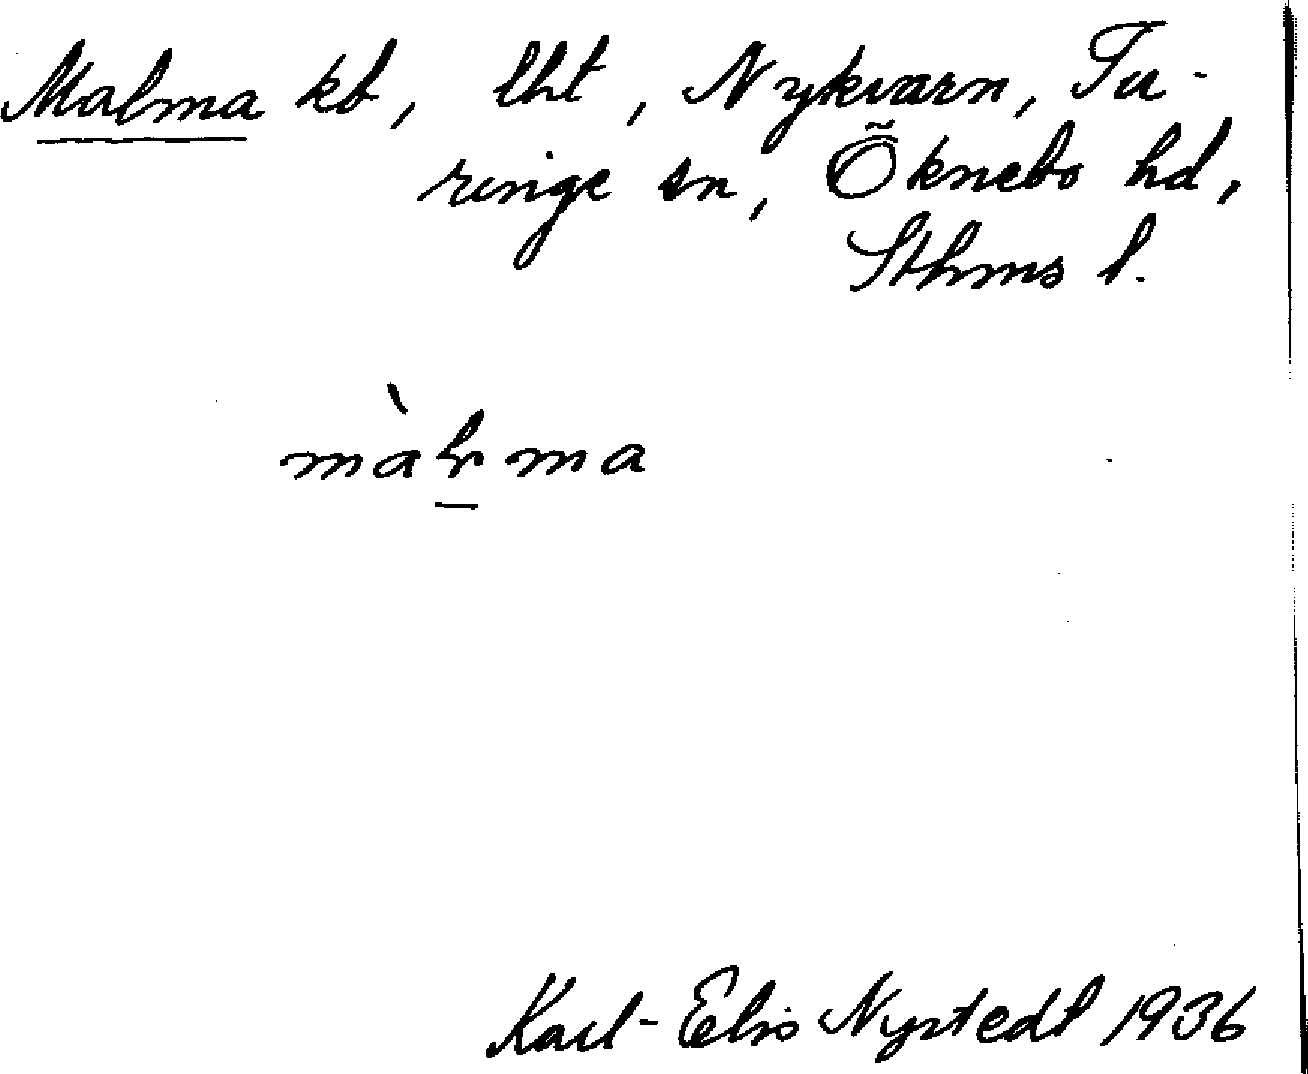 Malma kb, lht, Nykvarn, Tu-
ringe sn, Õknebo hd,
Sthms l.
màl̠ma
Karl-Elis Nystedt 1936